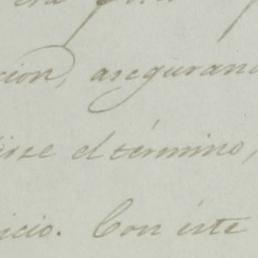 cion, asegurand
irse el término,
icio. Con éste